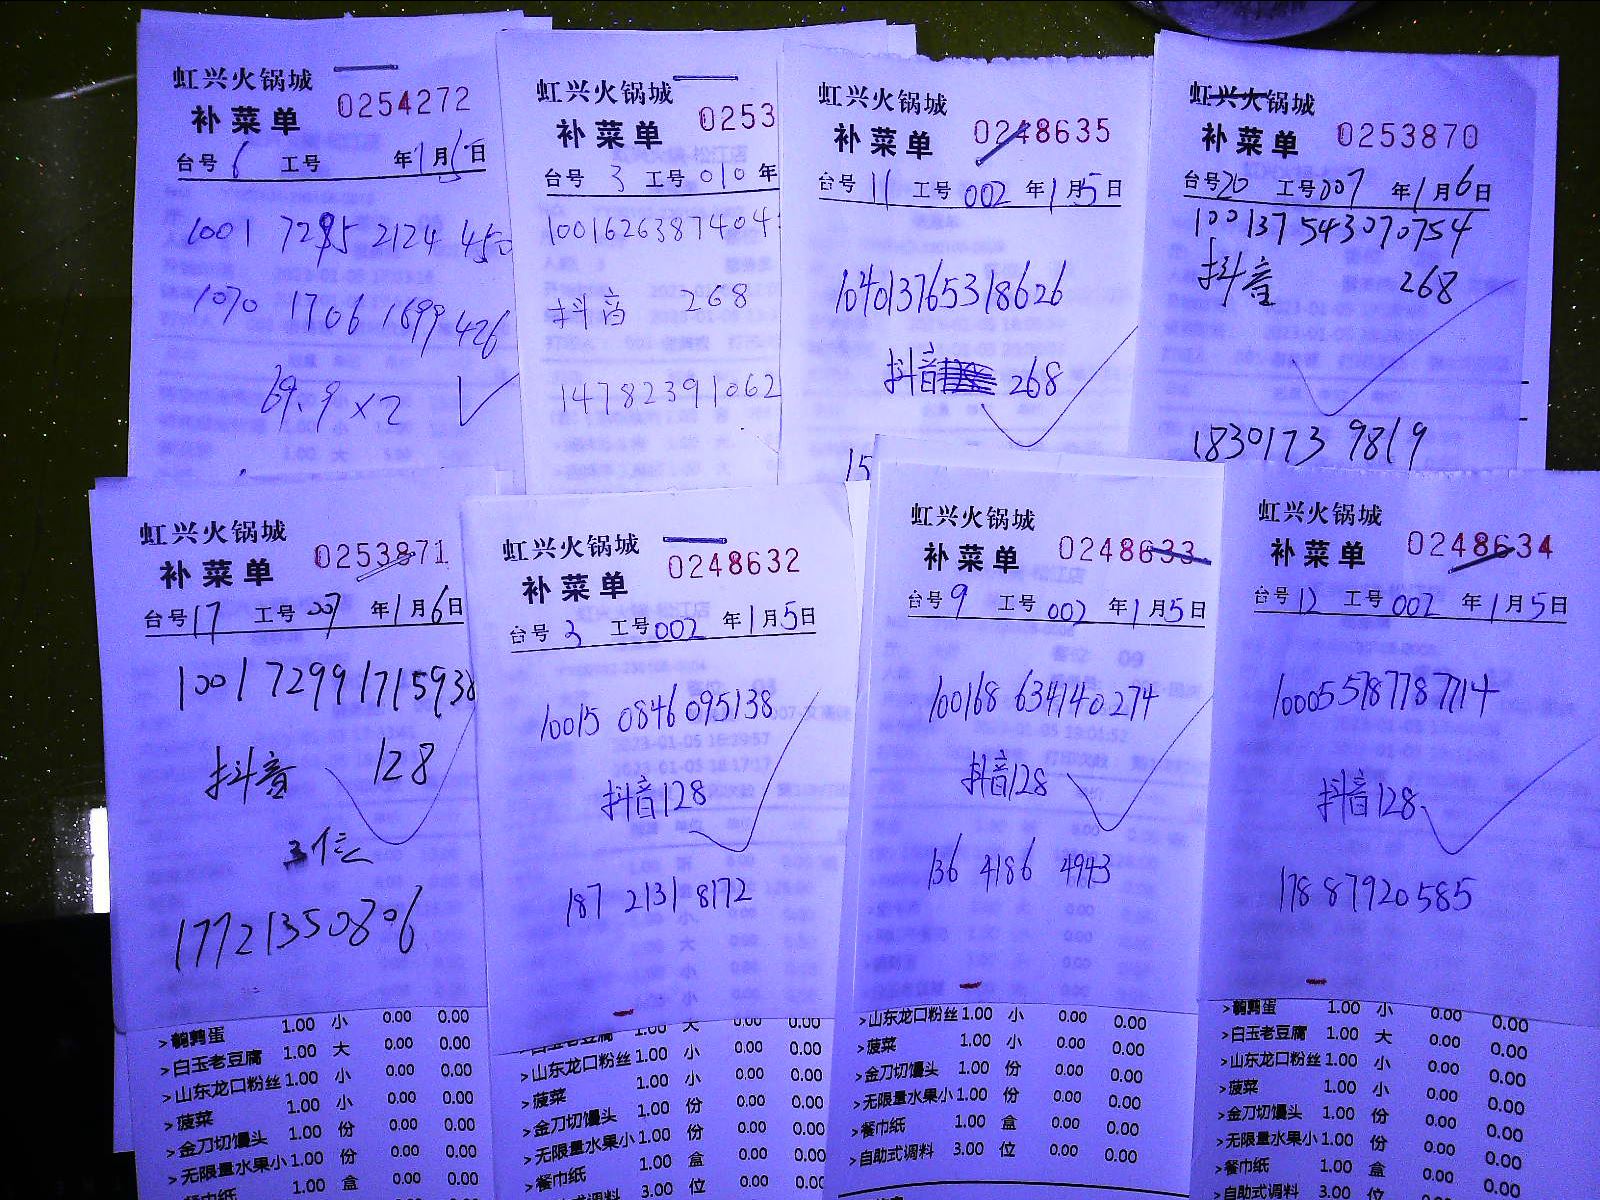 虹兴火锅城
补菜单
0254272
台号 6 工号 年1月5日
1001 7295 2124 450
1070 1706 1699 426
69.9×2
虹兴火锅城
补菜单
0253
台号 3 工号 010 年
1001626387404
抖音 268
14782391062
虹兴火锅城
补菜单
0248635
台号 11 工号 002 年1月5日
104013765318626
抖音 268
15
虹兴火锅城
补菜单
0253870
台号 20 工号 007 年1月6日
100137543070754
抖音 268
18301739819
虹兴火锅城
补菜单
0253871
台号 17 工号 007 年1月6日
100172991715938
抖音 128
17721350806
虹兴火锅城
补菜单
0248632
台号 3 工号 002 年1月5日
10015 0846 095138
抖音128
187 2131 8172
虹兴火锅城
补菜单
0248633
台号 9 工号 002 年1月5日
100168 634140274
抖音128
136 4186 4943
虹兴火锅城
补菜单
0248634
台号 12 工号 002 年1月5日
100055787787714
抖音128
178 87920585
>鹌鹑蛋 1.00 小 0.00 0.00
>白玉老豆腐 1.00 大 0.00 0.00
>山东龙口粉丝 1.00 小 0.00 0.00
>菠菜 1.00 小 0.00 0.00
>金刀切馒头 1.00 份 0.00 0.00
>无限量水果小 1.00 份 0.00 0.00
餐巾纸 1.00 盒 0.00 0.00
白玉老豆腐 1.00 大 0.00 0.00
>山东龙口粉丝 1.00 小 0.00 0.00
>菠菜 1.00 小 0.00 0.00
>金刀切馒头 1.00 份 0.00 0.00
>无限量水果小 1.00 份 0.00 0.00
>餐巾纸 1.00 盒 0.00 0.00
自助式调料 3.00 位 0.00 0.00
>山东龙口粉丝 1.00 小 0.00 0.00
>菠菜 1.00 小 0.00 0.00
>金刀切馒头 1.00 份 0.00 0.00
>无限量水果小 1.00 份 0.00 0.00
>餐巾纸 1.00 盒 0.00 0.00
>自助式调料 3.00 位 0.00 0.00
>鹌鹑蛋 1.00 小 0.00 0.00
>白玉老豆腐 1.00 大 0.00 0.00
>山东龙口粉丝 1.00 小 0.00 0.00
>菠菜 1.00 小 0.00 0.00
>金刀切馒头 1.00 份 0.00 0.00
>无限量水果小 1.00 份 0.00 0.00
>餐巾纸 1.00 盒 0.00 0.00
>自助式调料 3.00 位 0.00 0.00